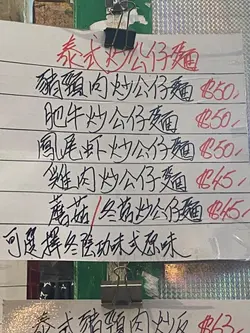 泰式炒公仔麵
豬頸肉炒公仔麵 $50.
肥牛炒公仔麵 $50.
鳳尾虾炒公仔麵 $50.
雞肉炒公仔麵 $45.
蘑菇/冬菇炒公仔麵 $45.
可選擇冬蔭功味或原味
泰式豬頸肉炒飯 $63